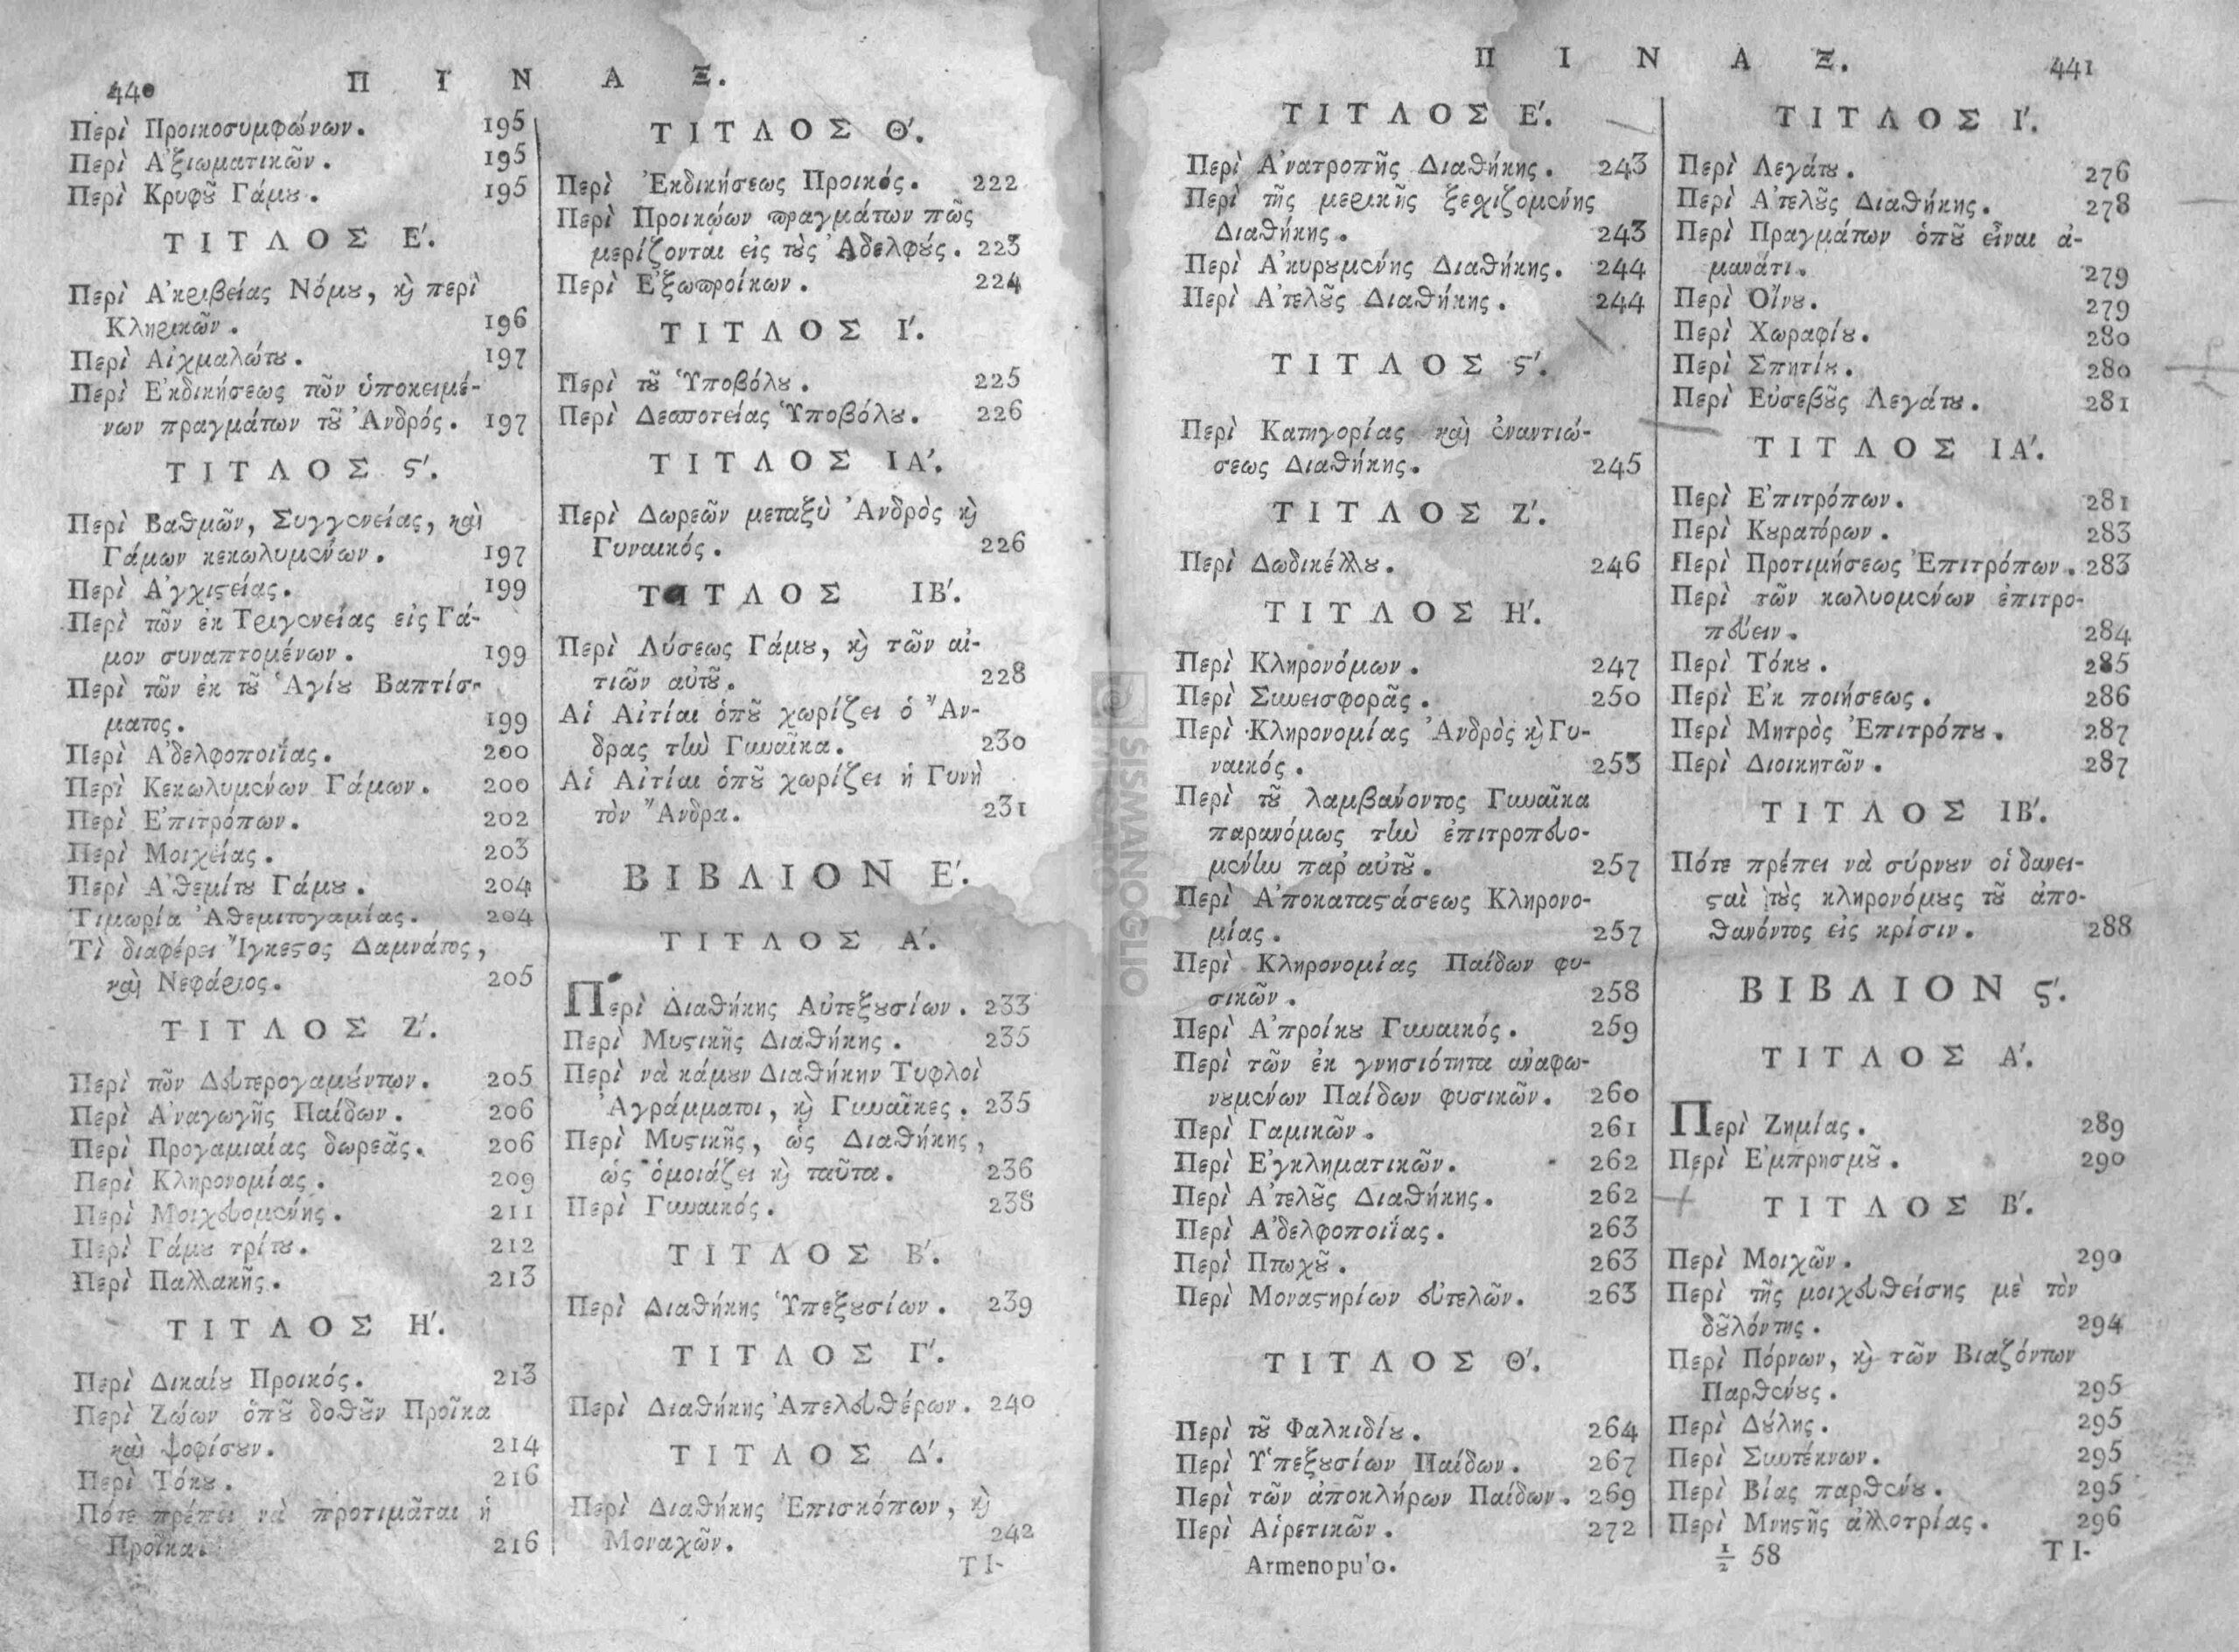 440 Π Ι Ν Α Ξ.
Περὶ Προικοσυμφώνων. 195
Περὶ Ἀξιωματικῶν. 195
Περὶ Κρυφȣ͂ Γάμȣ. 195
ΤΙΤΛΟΣ Ε΄.
Περὶ Ἀκριβείας Νόμȣ, ϗ περὶ
Κληρικῶν. 196
Περὶ Αἰχμαλώτȣ. 197
Περὶ Ἐκδικήσεως τῶν ὑποκειμέ-
νων πραγμάτων τȣ͂ Ἀνδρός. 197
ΤΙΤΛΟΣ ϛ΄.
Περὶ Βαθμῶν, Συγγενείας, καὶ
Γάμων κεκωλυμένων. 197
Περὶ Ἀγχιϛείας. 199
Περὶ τῶν ἐκ Τριγενείας εἰς Γά-
μον συναπτομένων. 199
Περὶ τῶν ἐκ τȣ͂ Ἁγίȣ Βαπτίσ-
ματος. 199
Περὶ Ἀδελφοποιΐας. 200
Περὶ Κεκωλυμένων Γάμων. 200
Περὶ Ἐπιτρόπων. 202
Περὶ Μοιχείας. 203
Περὶ Ἀθεμίτȣ Γάμȣ. 204
Τιμωρία Ἀθεμιτογαμίας. 204
Τὶ διαφέρει Ἴγκεϛος Δαμνάτος,
καὶ Νεφάριος. 205
ΤΙΤΛΟΣ Ζ΄.
Περὶ τῶν Δευτερογαμȣ́ντων. 205
Περὶ Ἀναγωγῆς Παίδων. 206
Περὶ Προγαμιαίας δωρεᾶς. 206
Περὶ Κληρονομίας. 209
Περὶ Μοιχευομένης. 211
Περὶ Γάμȣ τρίτȣ. 212
Περὶ Παλλακῆς. 213
ΤΙΤΛΟΣ Η΄.
Περὶ Δικαίȣ Προικός. 213
Περὶ Ζώων ὁπȣ͂ δοθȣ͂ν Προῖκα
καὶ ψοφίσȣν. 214
Περὶ Τόκȣ. 216
Πότε πρέπει νὰ προτιμᾶται ἡ
Προῖκα. 216
ΤΙΤΛΟΣ Θ΄.
Περὶ Ἐκδικήσεως Προικός. 222
Περὶ Προικῴων πραγμάτων πῶς
μερίζονται εἰς τȣ̀ς Ἀδελφȣ́ς. 223
Περὶ Ἐξωπροίκων. 224
ΤΙΤΛΟΣ Ι΄.
Περὶ τȣ͂ Ὑποβόλȣ. 225
Περὶ Δεσποτείας Ὑποβόλȣ. 226
ΤΙΤΛΟΣ ΙΑ΄.
Περὶ Δωρεῶν μεταξὺ Ἀνδρὸς ϗ
Γυναικός. 226
ΤΙΤΛΟΣ ΙΒ΄.
Περὶ Λύσεως Γάμȣ, ϗ τῶν αἰ-
τιῶν αὐτȣ͂. 228
Αἱ Αἰτίαι ὁπȣ͂ χωρίζει ὁ Ἄν-
δρας τὴν Γυναῖκα. 230
Αἱ Αἰτίαι ὁπȣ͂ χωρίζει ἡ Γυνὴ
τὸν Ἄνδρα. 231
ΒΙΒΛΙΟΝ Ε΄.
ΤΙΤΛΟΣ Α΄.
Περὶ Διαθήκης Αὐτεξȣσίων. 233
Περὶ Μυϛικῆς Διαθήκης. 235
Περὶ νὰ κάμȣν Διαθήκην Τυφλοὶ
Ἀγράμματοι, ϗ Γυναῖκες. 235
Περὶ Μυϛικῆς, ὡς Διαθήκης,
ὡς ὁμοιάζει ϗ ταῦτα. 236
Περὶ Γυναικός. 238
ΤΙΤΛΟΣ Β΄.
Περὶ Διαθήκης Ὑπεξȣσίων. 239
ΤΙΤΛΟΣ Γ΄.
Περὶ Διαθήκης Ἀπελευθέρων. 240
ΤΙΤΛΟΣ Δ΄.
Περὶ Διαθήκης Ἐπισκόπων, ϗ
Μοναχῶν. 242
ΤΙ-
Π Ι Ν Α Ξ. 441
ΤΙΤΛΟΣ Ε΄.
Περὶ Ἀνατροπῆς Διαθήκης. 243
Περὶ τῆς μερικῆς ξεχιζομένης
Διαθήκης. 243
Περὶ Ἀκυρȣμένης Διαθήκης. 244
Περὶ Ἀτελȣ͂ς Διαθήκης. 244
ΤΙΤΛΟΣ ϛ΄.
Περὶ Κατηγορίας καὶ ἐναντιώ-
σεως Διαθήκης. 245
ΤΙΤΛΟΣ Ζ΄.
Περὶ Δωδικέλλȣ. 246
ΤΙΤΛΟΣ Η΄.
Περὶ Κληρονόμων. 247
Περὶ Συνεισφορᾶς. 250
Περὶ Κληρονομίας Ἀνδρὸς ϗ Γυ-
ναικός. 253
Περὶ τȣ͂ λαμβάνοντος Γυναῖκα
παρανόμως τὴν ἐπιτροπευο-
μένην παρ' αὐτȣ͂. 257
Περὶ Ἀποκαταϛάσεως Κληρονο-
μίας. 257
Περὶ Κληρονομίας Παίδων φυ-
σικῶν. 258
Περὶ Ἀπροίκȣ Γυναικός. 259
Περὶ τῶν ἐκ γνησιότητα ἀναφω-
νȣμένων Παίδων φυσικῶν. 260
Περὶ Γαμικῶν. 261
Περὶ Ἐγκληματικῶν. 262
Περὶ Ἀτελȣ͂ς Διαθήκης. 262
Περὶ Ἀδελφοποιΐας. 263
Περὶ Πτωχȣ͂. 263
Περὶ Μοναϛηρίων εὐτελῶν. 263
ΤΙΤΛΟΣ Θ΄.
Περὶ τȣ͂ Φαλκιδίȣ. 264
Περὶ Ὑπεξȣσίων Παίδων. 267
Περὶ τῶν ἀποκλήρων Παίδων. 269
Περὶ Αἱρετικῶν. 272
Armenopu'o.
ΤΙΤΛΟΣ Ι΄.
Περὶ Λεγάτȣ. 276
Περὶ Ἀτελȣ͂ς Διαθήκης. 278
Περὶ Πραγμάτων ὁπȣ͂ εἶναι ἀ-
μανάτι. 279
Περὶ Οἴνȣ. 279
Περὶ Χωραφίȣ. 280
Περὶ Σπητίȣ. 280
Περὶ Εὐσεβȣ͂ς Λεγάτȣ. 281
ΤΙΤΛΟΣ ΙΑ΄.
Περὶ Ἐπιτρόπων. 281
Περὶ Κȣρατόρων. 283
Περὶ Προτιμήσεως Ἐπιτρόπων. 283
Περὶ τῶν κωλυομένων ἐπιτρο-
πεύειν. 284
Περὶ Τόκȣ. 285
Περὶ Ἐκ ποιήσεως. 286
Περὶ Μητρὸς Ἐπιτρόπȣ. 287
Περὶ Διοικητῶν. 287
ΤΙΤΛΟΣ ΙΒ΄.
Πότε πρέπει νὰ σύρνȣν οἱ δανει-
ϛαὶ τȣ̀ς κληρονόμȣς τȣ͂ ἀπο-
θανόντος εἰς κρίσιν. 288
ΒΙΒΛΙΟΝ ϛ΄.
ΤΙΤΛΟΣ Α΄.
Περὶ Ζημίας. 289
Περὶ Ἐμπρησμȣ͂. 290
ΤΙΤΛΟΣ Β΄.
Περὶ Μοιχῶν. 290
Περὶ τῆς μοιχευθείσης μὲ τὸν
δȣ͂λόν της. 294
Περὶ Πόρνων, ϗ τῶν Βιαζόντων
Παρθένȣς. 295
Περὶ Δȣ́λης. 295
Περὶ Συντέκνων. 295
Περὶ Βίας παρθένȣ. 295
Περὶ Μνηϛῆς ἀλλοτρίας. 296
½ 58 ΤΙ-
SISMANOGLIO
MEGARO